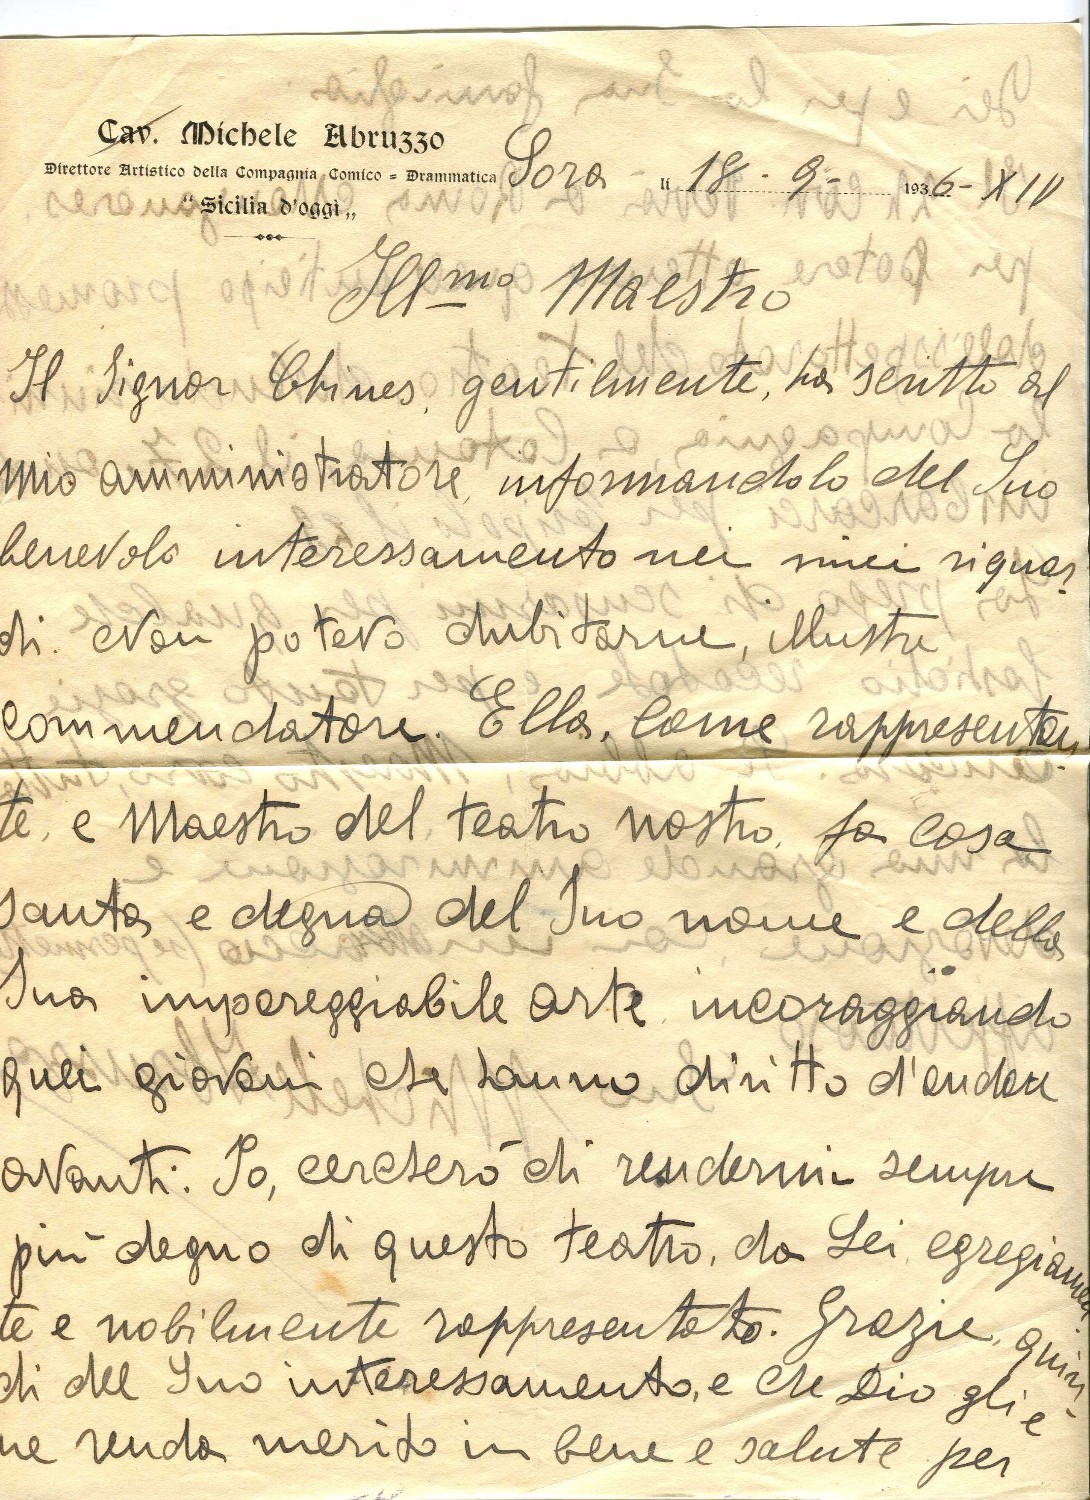 Cav. Michele Abruzzo
Direttore Artistico della Compagnia Comico = Drammatica
"Sicilia d'oggi„
Sora li 18 - 9 - 1936 - XIV
Ill.mo Maestro
Il Signor Chines, gentilmente, ha scritto al
mio amministratore, informandolo del Suo
benevolo interessamento nei miei riguar-
di. Non potevo dubitarne, illustre
commendatore. Ella, come rappresentan-
te, e Maestro del teatro nostro, fa cosa
santa e degna del Suo nome e della
Sua impareggiabile arte, incoraggiando
quei giovani che hanno diritto d'andare
avanti. Io, cercherò di rendermi sempre
più degno di questo teatro, da Lei, egregiamen-
te e nobilmente rappresentato. Grazie, quin-
di del Suo interessamento, e che Dio glie-
ne renda merito in bene e salute per